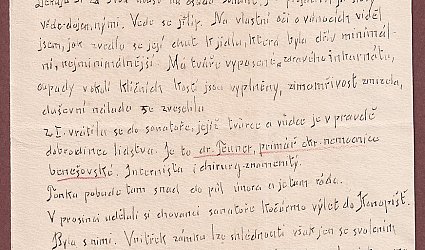 vědo-dojem,nými. Vede se jí líp. Na vlastní oči o vánocích viděl
jsem, jak zvedlo se její chuť k jídlu, která byla dřív minimál-
ní, nejminimálnější. Má tváře vypasené zdravého inkarnátu,
výpady v okolí klíčních kostí jsou vyplněny, zimomřivost zmizela,
duševní nálada se zveselila
2.I. vrátila se do sanatoře, jejíž tvůrce a vůdce je v pravdě
dobrodinec lidstva. Je to dr. primář okr. nemocnice
benešovské. Internista i chirurg znamenitý.
Pobude tam snad do půl února a je tam ráda.
V prosinci udělali si chovanci sanatoře kočármo výlet do Konopiště.
Byla s nimi. Vnitřek zámku lze shlédnouti však jen se svolením